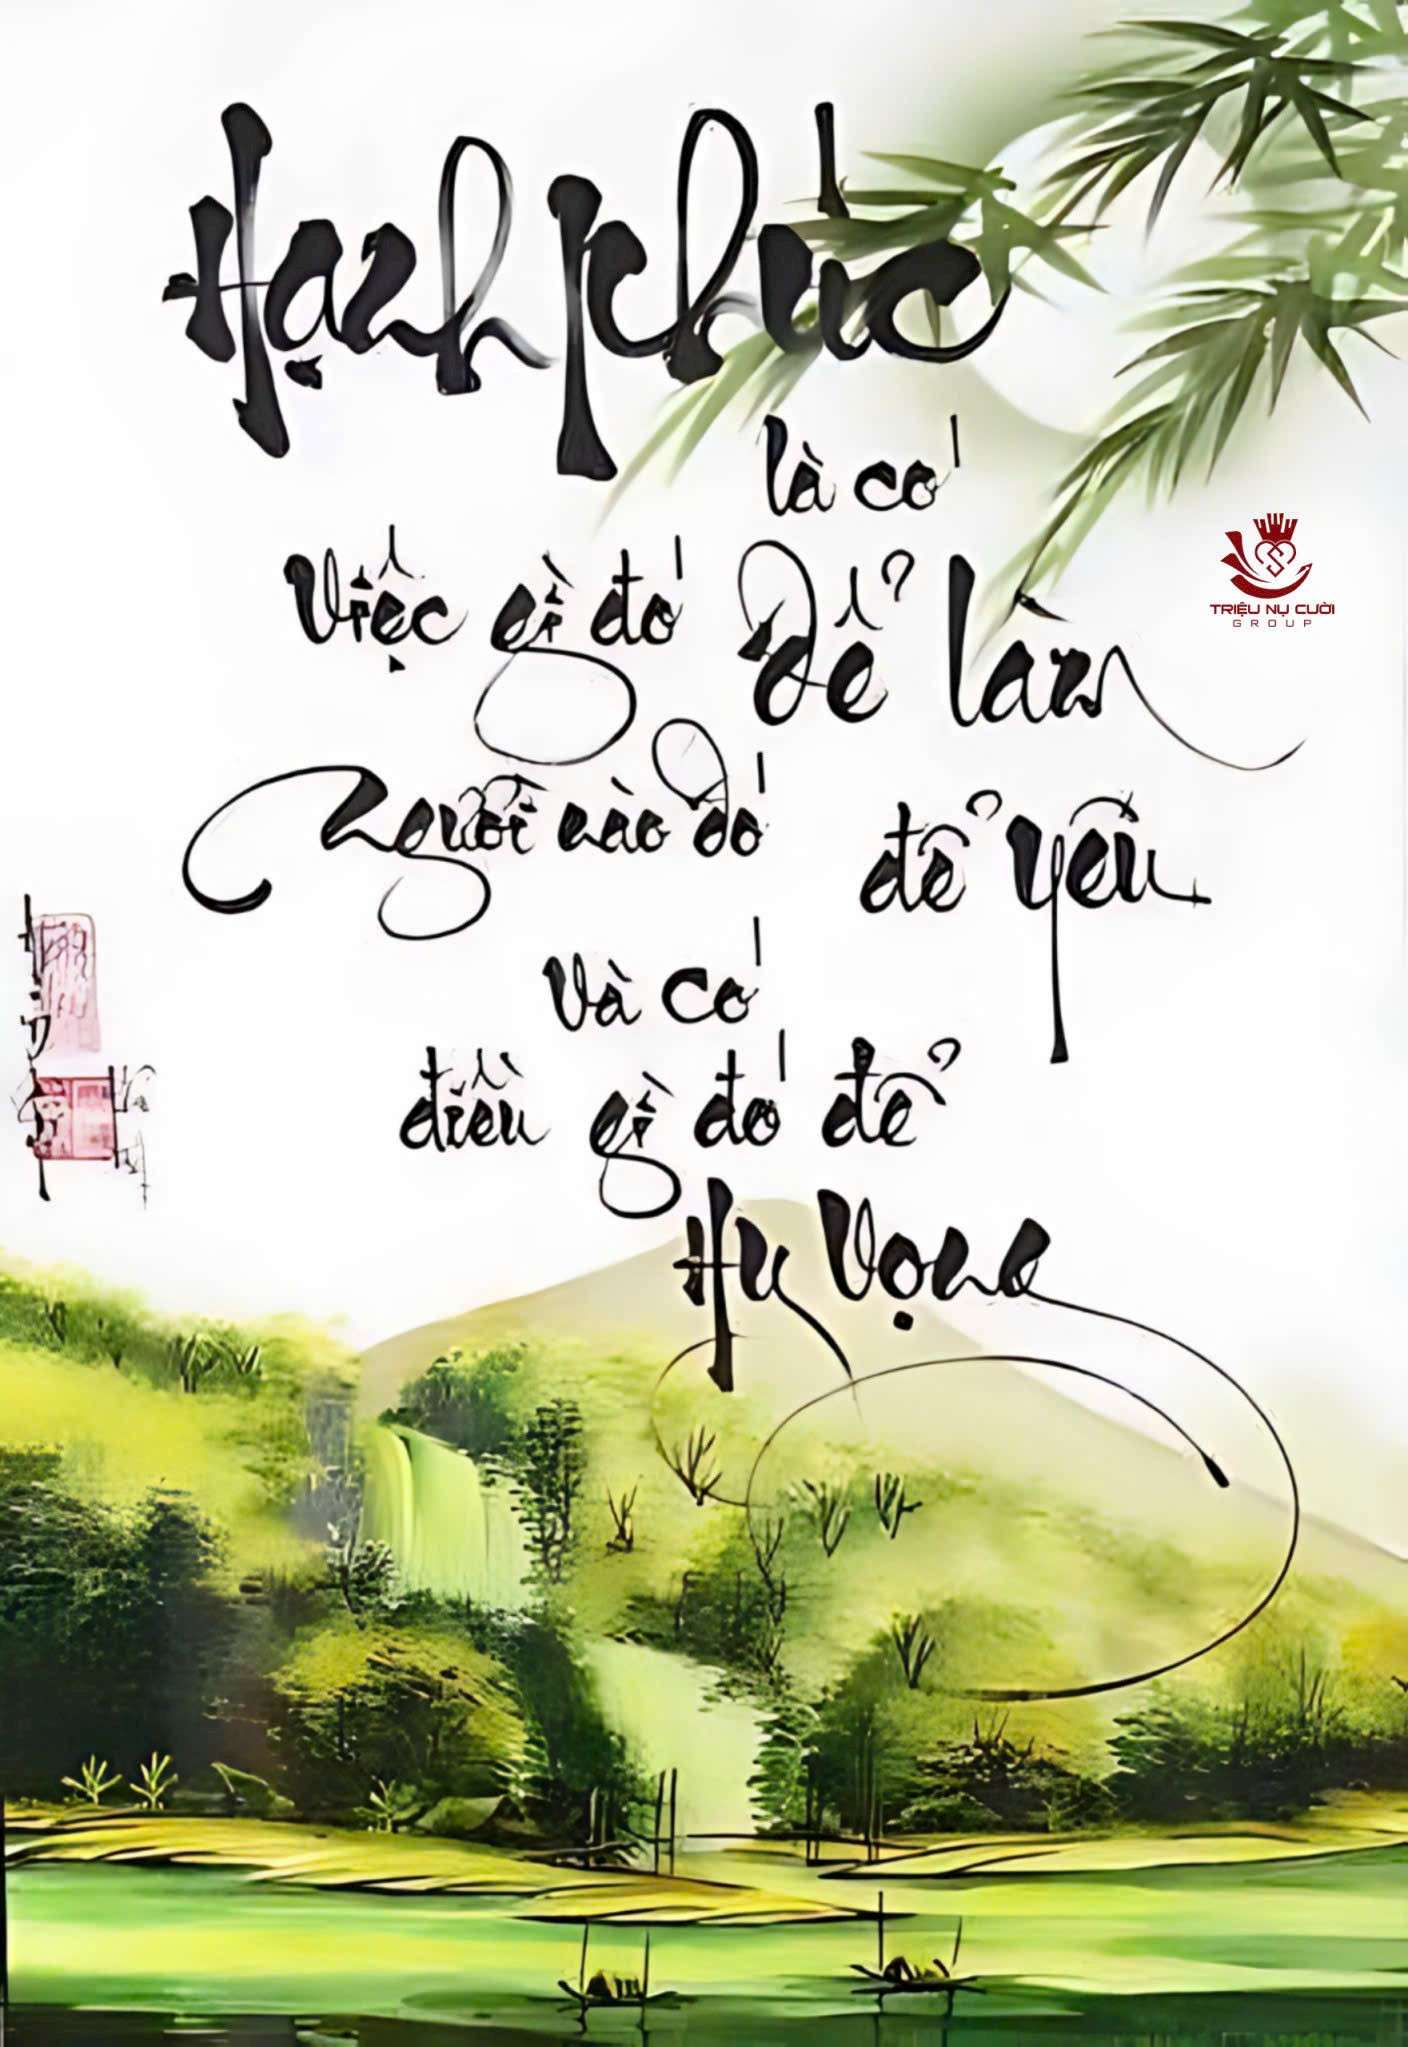 Hạnh phúc
là có
Việc gì đó để làm
người nào đó để yêu
và có
điều gì đó để
Hy Vọng
TRIỆU NỤ CƯỜI
GROUP